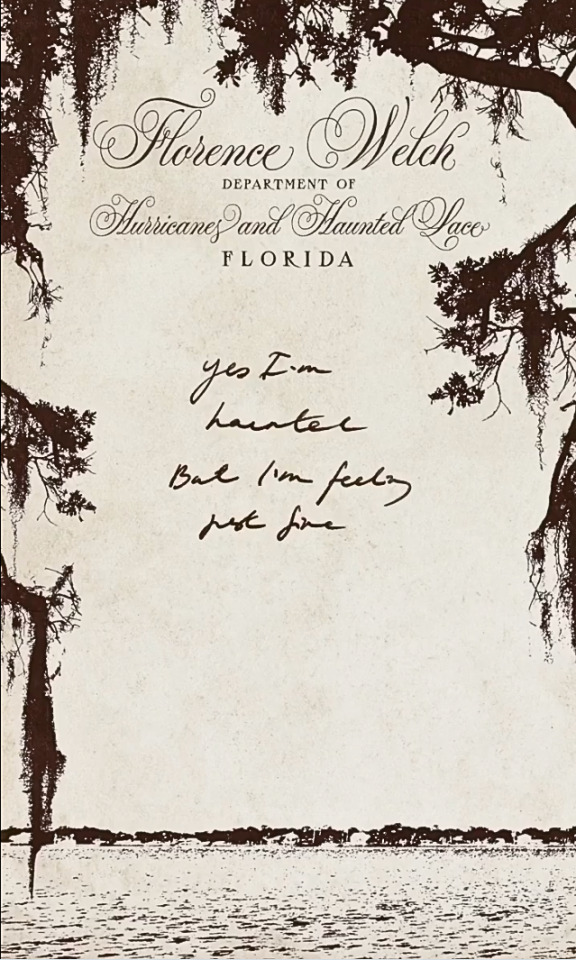 Florence Welch
DEPARTMENT OF
Hurricanes and Haunted Lace
FLORIDA
yes I'm
haunted
But I'm feeling
just fine